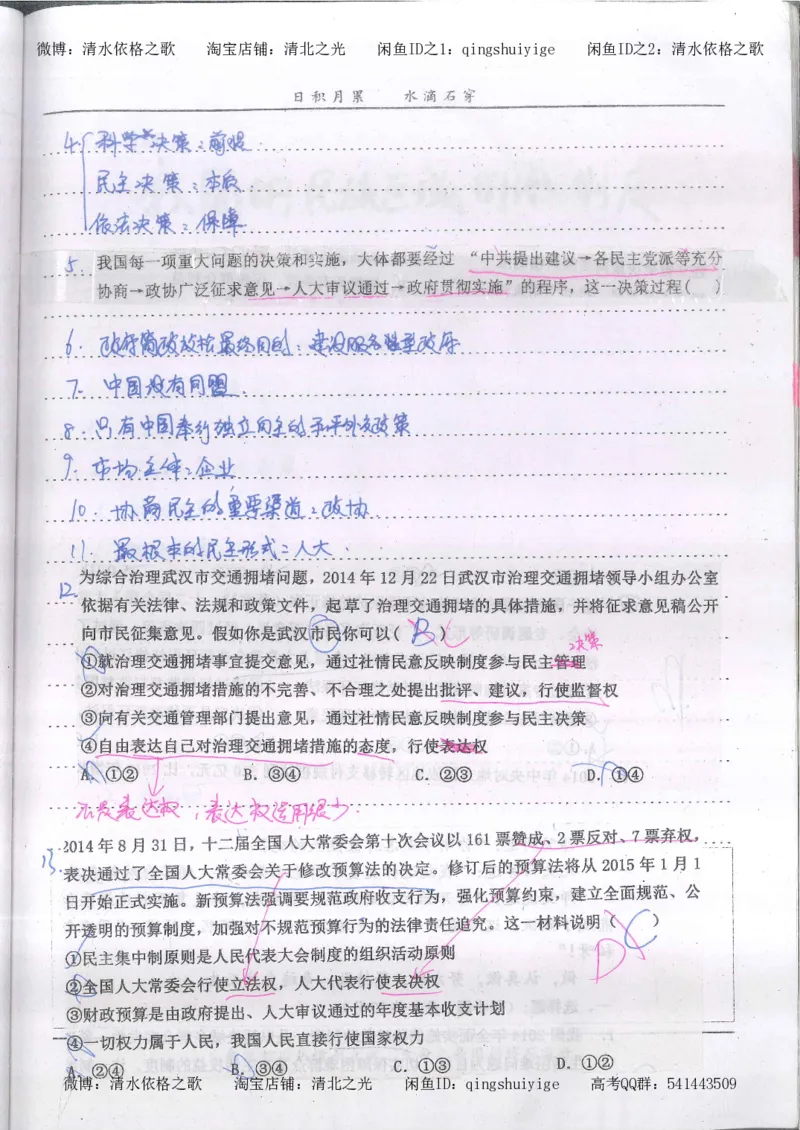 微博：清水依格之歌 淘宝店铺：清北之光 闲鱼ID之1：qingshuiyige 闲鱼ID之2：清水依格之歌
日积月累 水滴石穿
4. 科学决策：前提
民主决策：本质
依法决策：保障
5. 我国每一项重大问题的决策和实施，大体都要经过 “中共提出建议→各民主党派等充分
协商→政协广泛征求意见→人大审议通过→政府贯彻实施”的程序，这一决策过程( )
6. 政府简政放权最终目的：建设服务型政府
7. 中国没有同盟
8. 只有中国奉行独立自主的和平外交政策
9. 市场主体：企业
10. 协商民主的重要渠道：政协
11. 最根本的民主形式：人大
为综合治理武汉市交通拥堵问题，2014年12月22日武汉市治理交通拥堵领导小组办公室
12. 依据有关法律、法规和政策文件，起草了治理交通拥堵的具体措施，并将征求意见稿公开
向市民征集意见。假如你是武汉市民你可以( B )
决策
①就治理交通拥堵事宜提交意见，通过社情民意反映制度参与民主管理
②对治理交通拥堵措施的不完善、不合理之处提出批评、建议，行使监督权
③向有关交通管理部门提出意见，通过社情民意反映制度参与民主决策
④自由表达自己对治理交通拥堵措施的态度，行使表达权
A. ①② B. ③④ C. ②③ D. ①④
不是表达权，表达权运用很少.
2014年8月31日，十二届全国人大常委会第十次会议以161票赞成、2票反对、7票弃权，
13. 表决通过了全国人大常委会关于修改预算法的决定。修订后的预算法将从2015年1月1
日开始正式实施。新预算法强调要规范政府收支行为，强化预算约束，建立全面规范、公
开透明的预算制度，加强对不规范预算行为的法律责任追究。这一材料说明( C )
D
①民主集中制原则是人民代表大会制度的组织活动原则
②全国人大常委会行使立法权，人大代表行使表决权
③财政预算是由政府提出、人大审议通过的年度基本收支计划
④一切权力属于人民，我国人民直接行使国家权力
A. ②④ B. ③④ C. ①③ D. ①②
微博：清水依格之歌 淘宝店铺：清北之光 闲鱼ID：qingshuiyige 高考QQ群：541443509